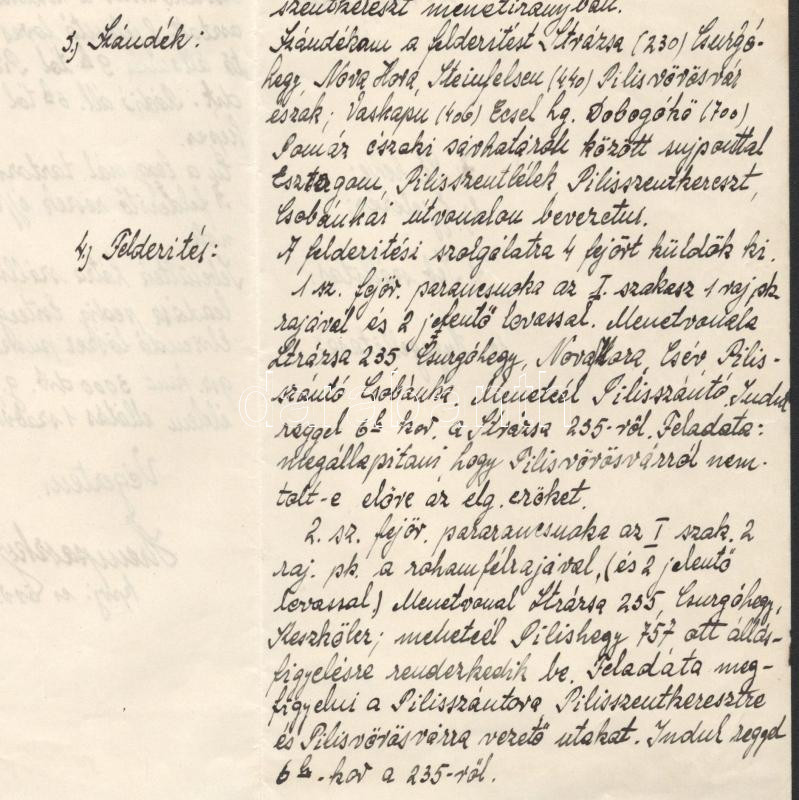 szentkereszt menetirányban.
3.) Szándék:
Szándékom a felderitést Strázsa (230) Csurgó-
hegy, Nova Hora, Steinfelsen (440) Pilisvörösvár
észak; Vaskapu (406) Ecsel hg. Dobogókő (700)
Pomáz északi sárhatárok között sujponttal
Esztegom, Pilisszentlélek, Pilisszentkereszt,
Csobánkai útvonalon bevezetni.
4.) Felderités:
A felderitési szolgálatra 4 fejőrt küldök ki.
1 sz. fejőr. parancsnoka az I. szakasz 1 raj pk.
rajával és 2 jelentő lovassal. Menetvonala
Strázsa 235 Csurgóhegy, Nova Hora, Csév Pilis-
szántó Csobánka. Menetcél Pilisszántó. Indul
reggel 6h-kor. a Strázsa 235-ről. Feladata:
megállapitani, hogy Pilisvörösvárról nem-
tolt-e előre az elg. erőket.
2. sz. fejőr. pararancsnoka az I szak. 2
raj. pk. a rohamfélrajával, (és 2 jelentő
lovassal.) Menetvonal Strázsa 235, Csurgóhegy,
Keszkőler; menetcél Pilishegy 757 ott állás-
figyelésre renderkedik be. Feladáta meg-
figyelni a Pilisszántóra Pilisszentkeresztre
és Pilisvörösvárra vezető utakat. Indul reggel
6h-kor a 235-ről.